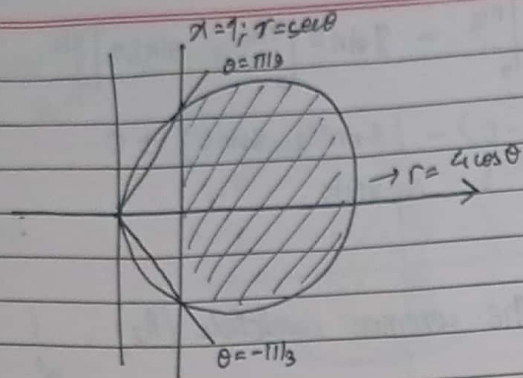 x=1; r=secθ
θ=π/3
→ r= 4cosθ
θ=-π/3